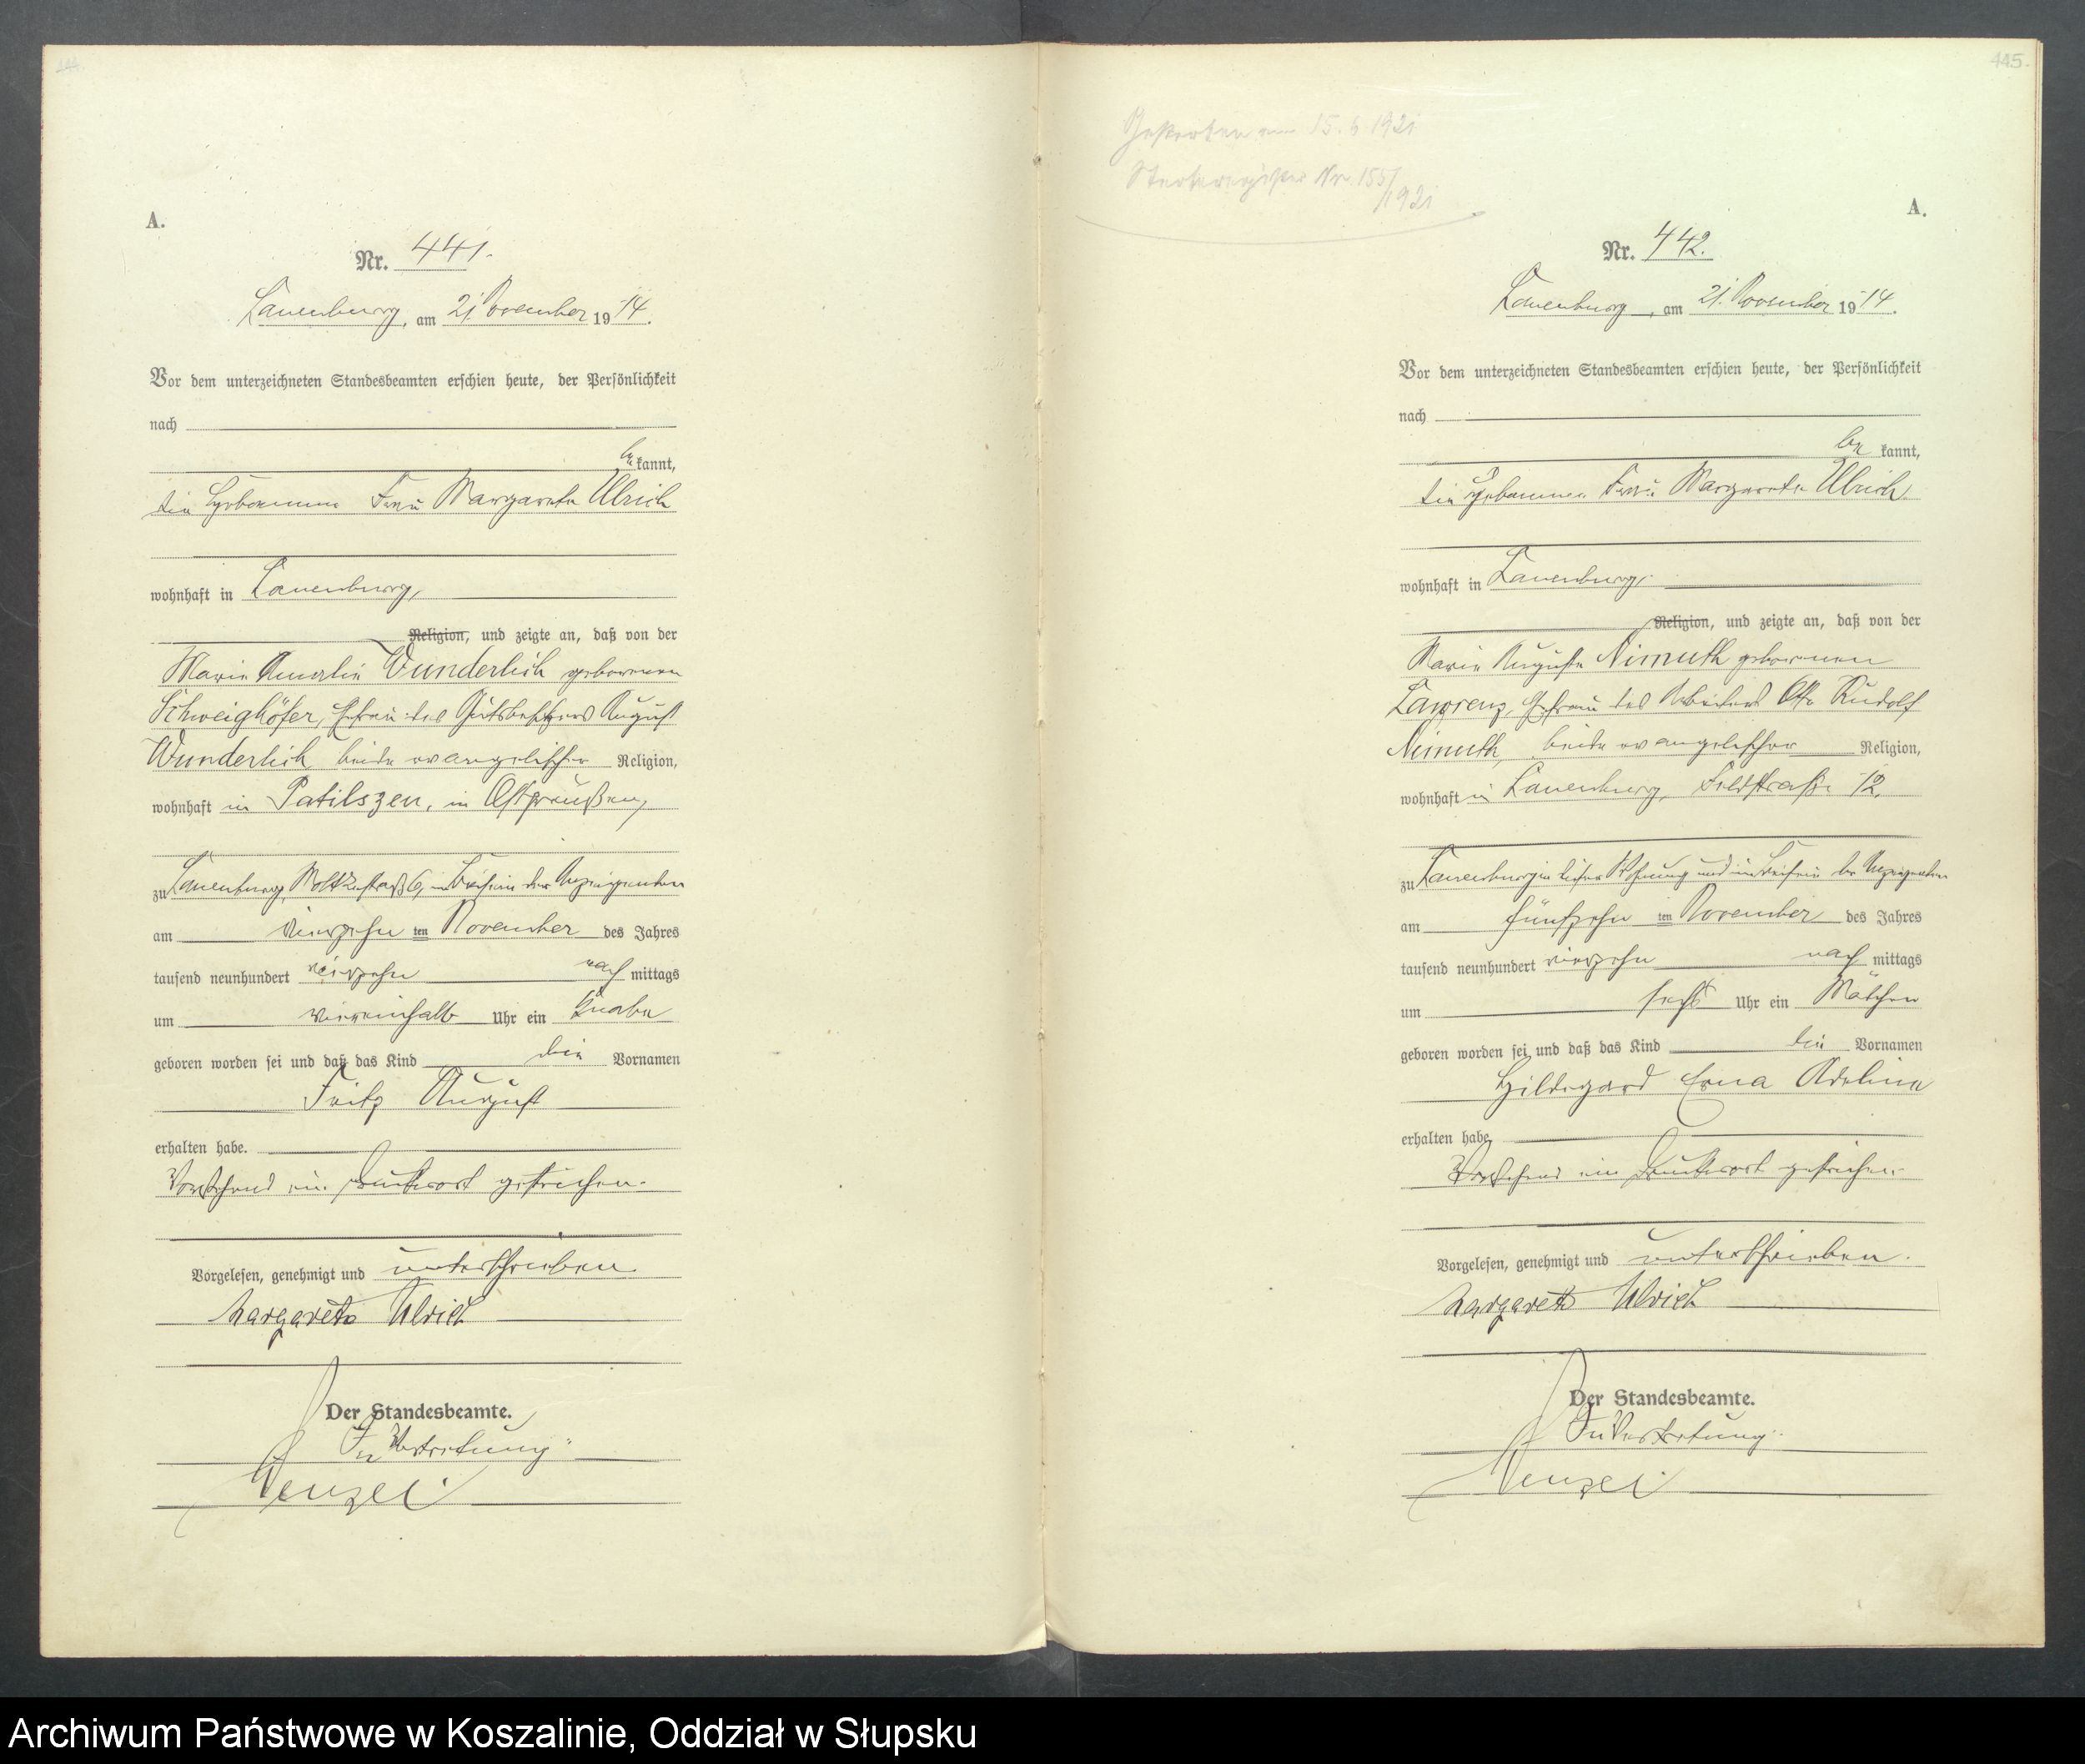 444.
A.
Nr. 441.
Lauenburg, am 21. November 1914.
Vor dem unterzeichneten Standesbeamten erschien heute, der Persönlichkeit
nach
bekannt,
die Hebamme Frau Margarete Ulrich
wohnhaft in Lauenburg,
Religion, und zeigte an, daß von der
Marie Amalie Wunderlich geborenen
Schweighöfer, Ehefrau des Gutsbesitzers August
Wunderlich beide evangelischer Religion,
wohnhaft in Patilszen, in Ostpreußen,
zu Lauenburg, Moltkestraß 6, im Beisein der Anzeigenden
am vierzehn ten November des Jahres
tausend neunhundert vierzehn nach mittags
um viereinhalb Uhr ein Knabe
geboren worden sei und daß das Kind die Vornamen
Fritz August
erhalten habe.
Vorstehend ein Druckwort gestrichen.
Vorgelesen, genehmigt und unterschrieben
Margarete Ulrich
Der Standesbeamte.
In Vertretung
Wenzel
445.
Gestorben am 15.6.1921
Sterberegister Nr. 155/
1921
A.
Nr. 442.
Lauenburg, am 21. November 1914.
Vor dem unterzeichneten Standesbeamten erschien heute, der Persönlichkeit
nach
be kannt,
die Hebamme Frau Margarete Ulrich
wohnhaft in Lauenburg,
Religion, und zeigte an, daß von der
Marie Auguste Nimuth geborenen
Lawrenz, Ehefrau des Arbeiters Otto Rudolf
Nimuth, beide evangelischer Religion,
wohnhaft in Lauenburg, Feldstraße 12,
zu Lauenburg in dieser Wohnung und im Beisein der Anzeigenden
am fünfzehn ten November des Jahres
tausend neunhundert vierzehn nach mittags
um sechs Uhr ein Mädchen
geboren worden sei und daß das Kind die Vornamen
Hildegard Erna Adeline
erhalten habe
Vorstehend ein Druckwort gestrichen.
Vorgelesen, genehmigt und unterschrieben.
Margarete Ulrich
Der Standesbeamte.
In Vertretung.
Wenzel
Archiwum Państwowe w Koszalinie, Oddział w Słupsku